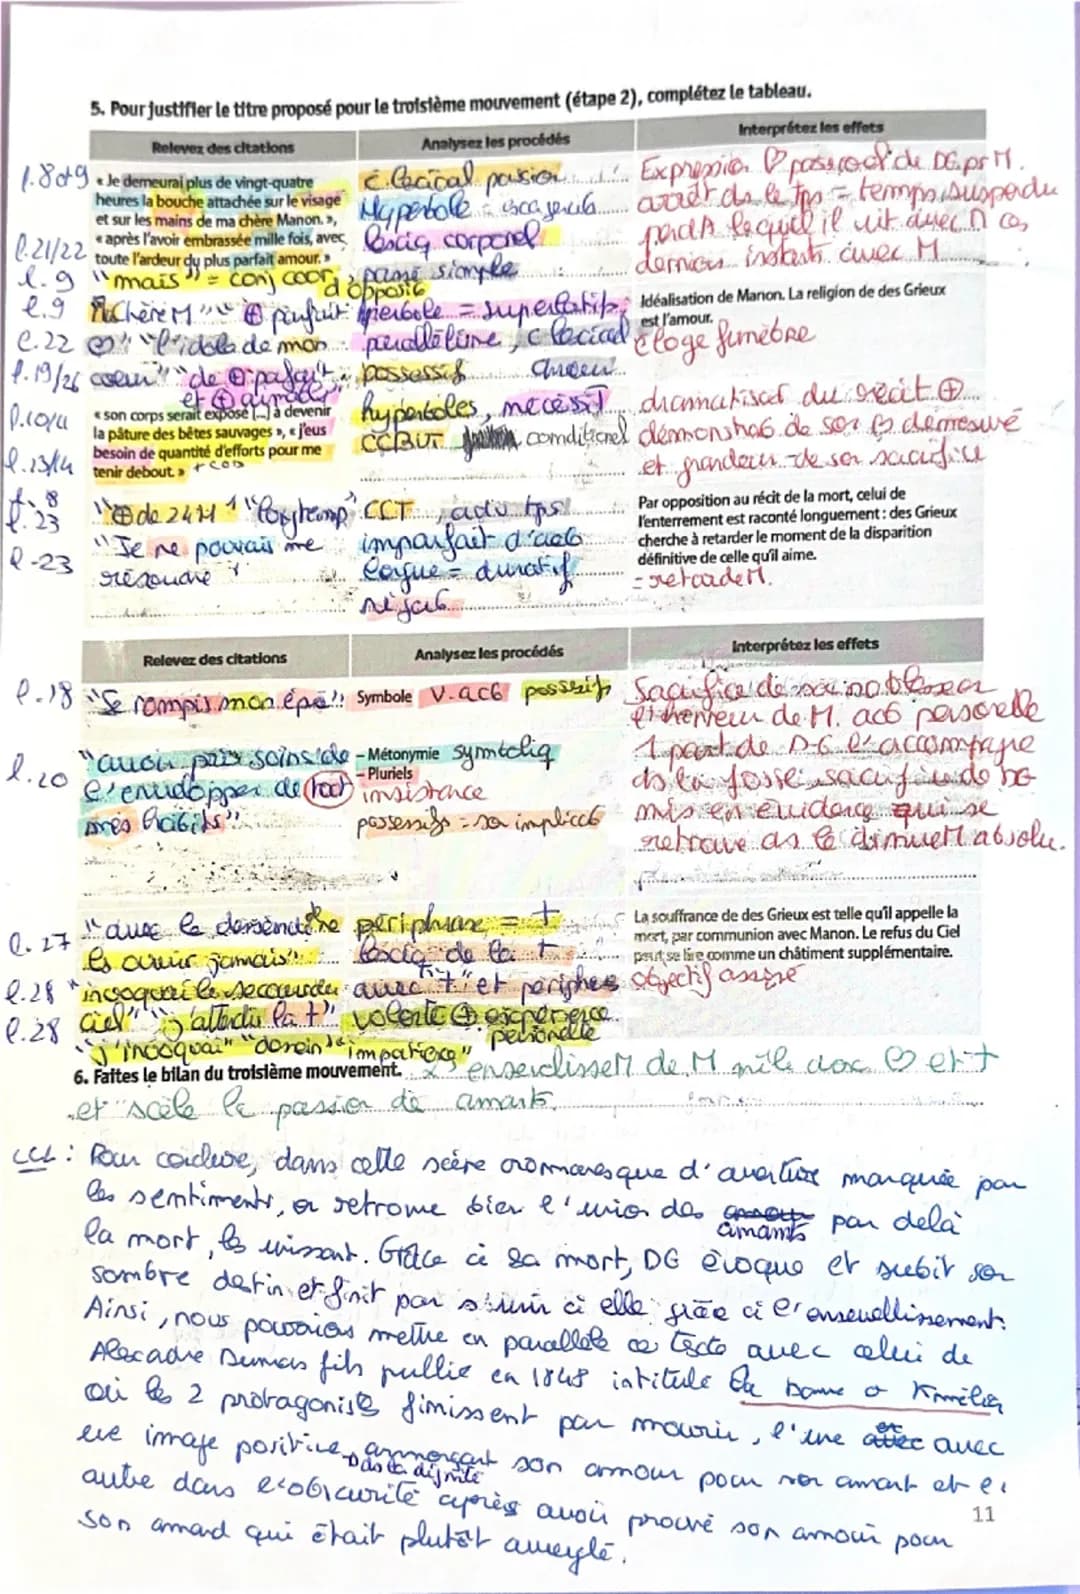 5. Pour justifier le titre proposé pour le troisième mouvement (étape 2), complétez le tableau.
Relevez des citations
Analysez les procédés
Interprétez les effets
l.8et9
« Je demeurai plus de vingt-quatre
heures la bouche attachée sur le visage
et sur les mains de ma chère Manon. »,
l.21/22
« après l'avoir embrassée mille fois, avec
toute l'ardeur du plus parfait amour. »
l.9 "mais" = conj coord
d'opposit°
l.9 "Chère M"
⊕ parfait
l.22 "l'idole de mon
l.19/26 coeur" "de ⊕ parfait
et ⊕ aimable"
l.10/11
« son corps serait exposé [...] à devenir
la pâture des bêtes sauvages », « j'eus
besoin de quantité d'efforts pour me
l.13/14
tenir debout. »
l.8 "⊕ de 24H" "longtemp"
l.23
l.23 "Je ne pouvais me
résoudre"
c. lexical passion
Hyperbole = exagérat°
lexiq corporel
passé simple
hyperbole = superlatif,
parallélisme, c lexical
possessif
hyperboles, nécessit
CCBUT conditionel
CCT, adv tps
imparfait d'act°
longue = duratif
négat°
Expression ♡ passionel de DG pr M.
arrêt ds le tps = temps suspendu
pendt lequel il vit avec M ces
derniers instants avec M
Idéalisation de Manon. La religion de des Grieux
est l'amour.
éloge funèbre
dramatisat° du récit ⊕
démonstrat° de son ♡ démesuré
et grandeur de son sacrifice
Par opposition au récit de la mort, celui de
l'enterrement est raconté longuement : des Grieux
cherche à retarder le moment de la disparition
définitive de celle qu'il aime.
= retarder M.
Relevez des citations
Analysez les procédés
Interprétez les effets
l.18 "Je rompis mon épé" Symbole V. act° possessifs
Sacrifice de sa noblesse
l'honneur de M. act° personelle
l.20 "avoir pris soins de
l'envelopper de tout
mes habits"
- Métonymie symboliq
- Pluriels
insistance
possessifs = sa implicat°
1 part de DG l'accompagne
ds la fosse sacrifice de DG
mis en évidence qui se
retrouve ds le dénuemt absolu.
l.27 "avec le dessein de ne
les ouvrir jamais"
l.28 "invoquai le secours du
l.28 ciel" "j'attendis la †"
"J'invoquai" "dessein" "impatience"
périphrase = †
lexiq de la †
avec "†" et périphrase
volonté ⊕ expérience
personelle
La souffrance de des Grieux est telle qu'il appelle la
mort, par communion avec Manon. Le refus du Ciel
peut se lire comme un châtiment supplémentaire.
objectif assigné
6. Faites le bilan du troisième mouvement.
L'ensevelissemt de M mêle donc ♡ et †
et scèle la passion de amants.
CCL : Pour conclure, dans cette scène romanesque d'aventure marquée par
les sentiments, on retrouve bien l'union des amants par delà
la mort, les unissant. Grâce à sa mort, DG évoque et subit son
sombre destin et finit par s'unir à elle grâce à l'ensevellissement.
Ainsi, nous pouvons mettre en parallèle ce texte avec celui de
Alexandre Dumas fils publié en 1848 intitulé La Dame o Kamélia
où les 2 protagonists finissent par mourir, l'une avec
une image positive, son amour pour son amant et l'
ds la dignité
autre dans l'obscurité après avoir prouvé son amour pour
son amand qui était plutôt aveuglé.
11